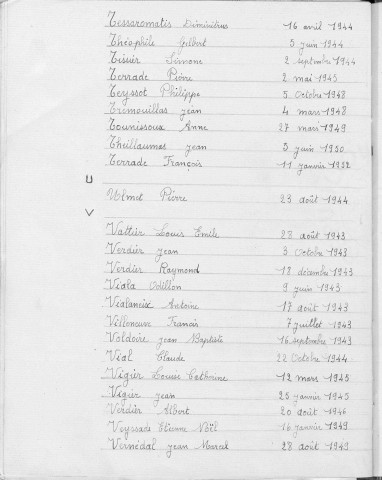 Tessaromatis Diminitrus 16 avril 1944
Théophile Gilbert 5 juin 1944
Tissier Simone 2 septembre 1944
Terrade Pierre 2 mai 1945
Teyssot Philippe 5 octobre 1948
Trémouillas jean 4 mars 1948
Tounissoux Anne 27 mars 1949
Theillaumas jean 5 juin 1950
Terrade François 11 janvier 1952
U
Ulmet Pierre 23 août 1944
V
Vattier Louis Emile 28 août 1943
Verdier jean 3 octobre 1943
Verdier Raymond 18 décembre 1943
Viala Odillon 9 juin 1943
Vialaneix Antoine 17 août 1943
Villeneuve Francis 7 juillet 1943
Valdoire jean Baptiste 16 septembre 1943
Vial Claude 22 octobre 1944
Vigier Louise Catherine 12 mars 1945
Viger jean 25 janvier 1945
Verdier Albert 20 août 1946
Veyssade Etienne Noël 16 janvier 1949
Vernédal jean Marcel 28 août 1949